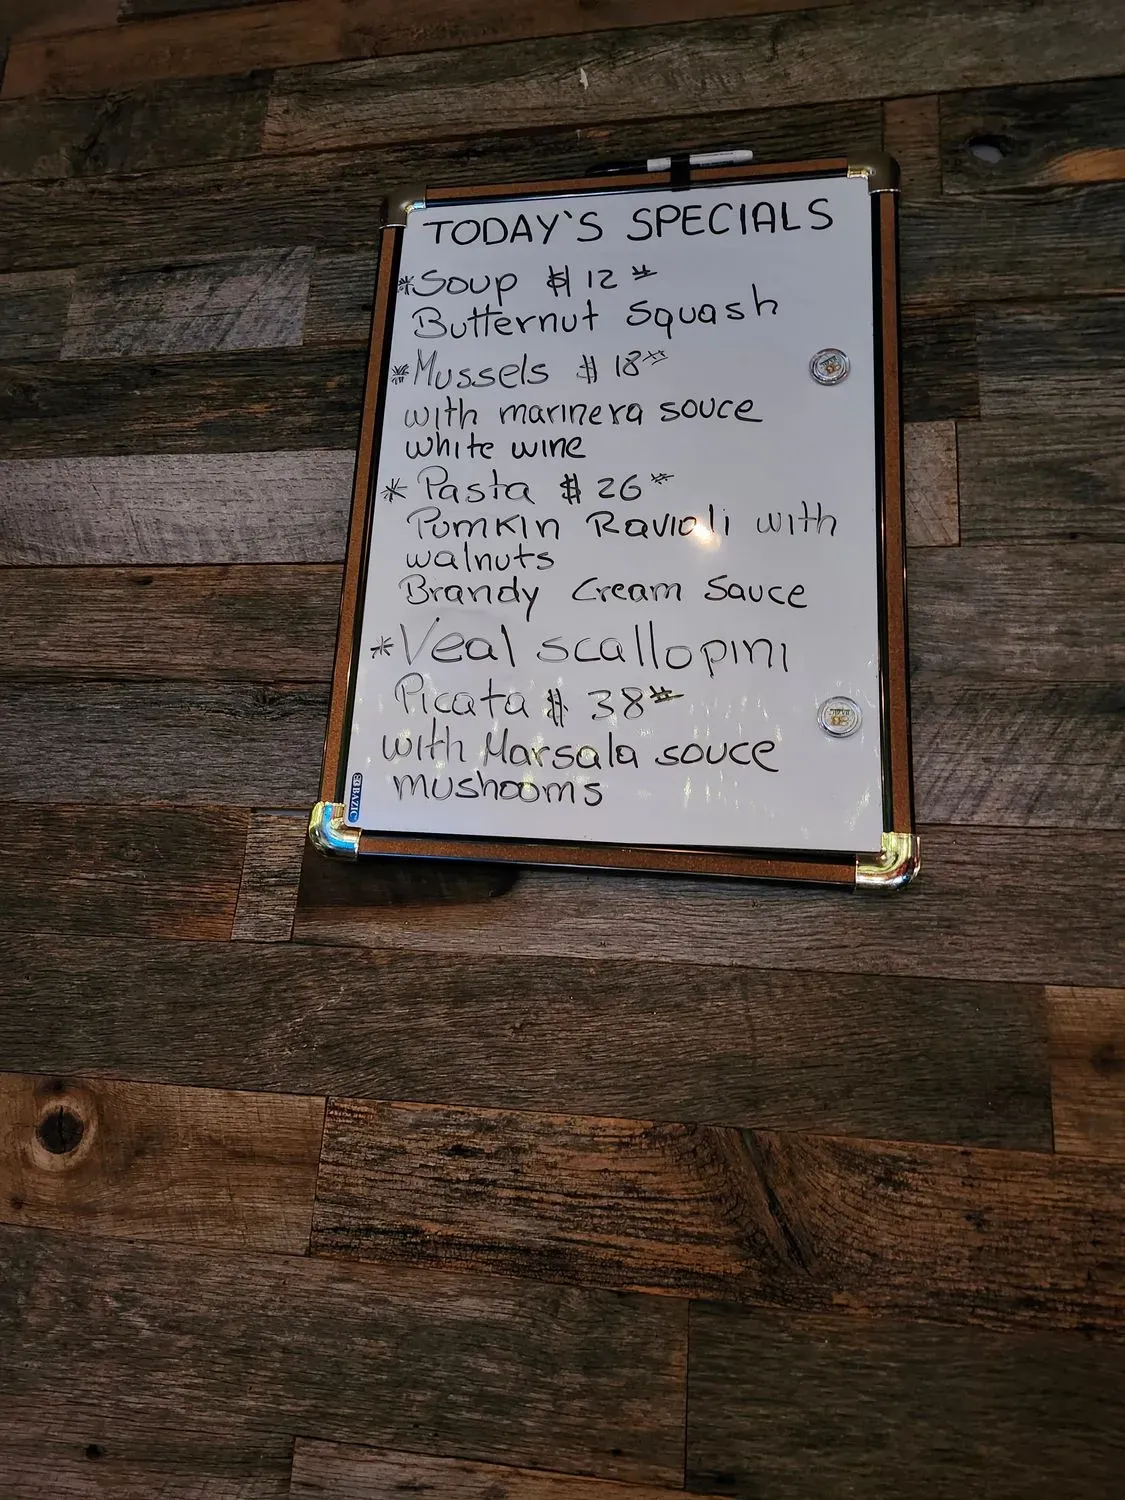 TODAY'S SPECIALS
*Soup $12
Butternut Squash
*Mussels $18
with marinera souce
white wine
* Pasta $26
Pumkin Ravioli with
walnuts
Brandy Cream Sauce
*Veal scallopini
Picata $38
with Marsala souce
mushooms
BAZIC